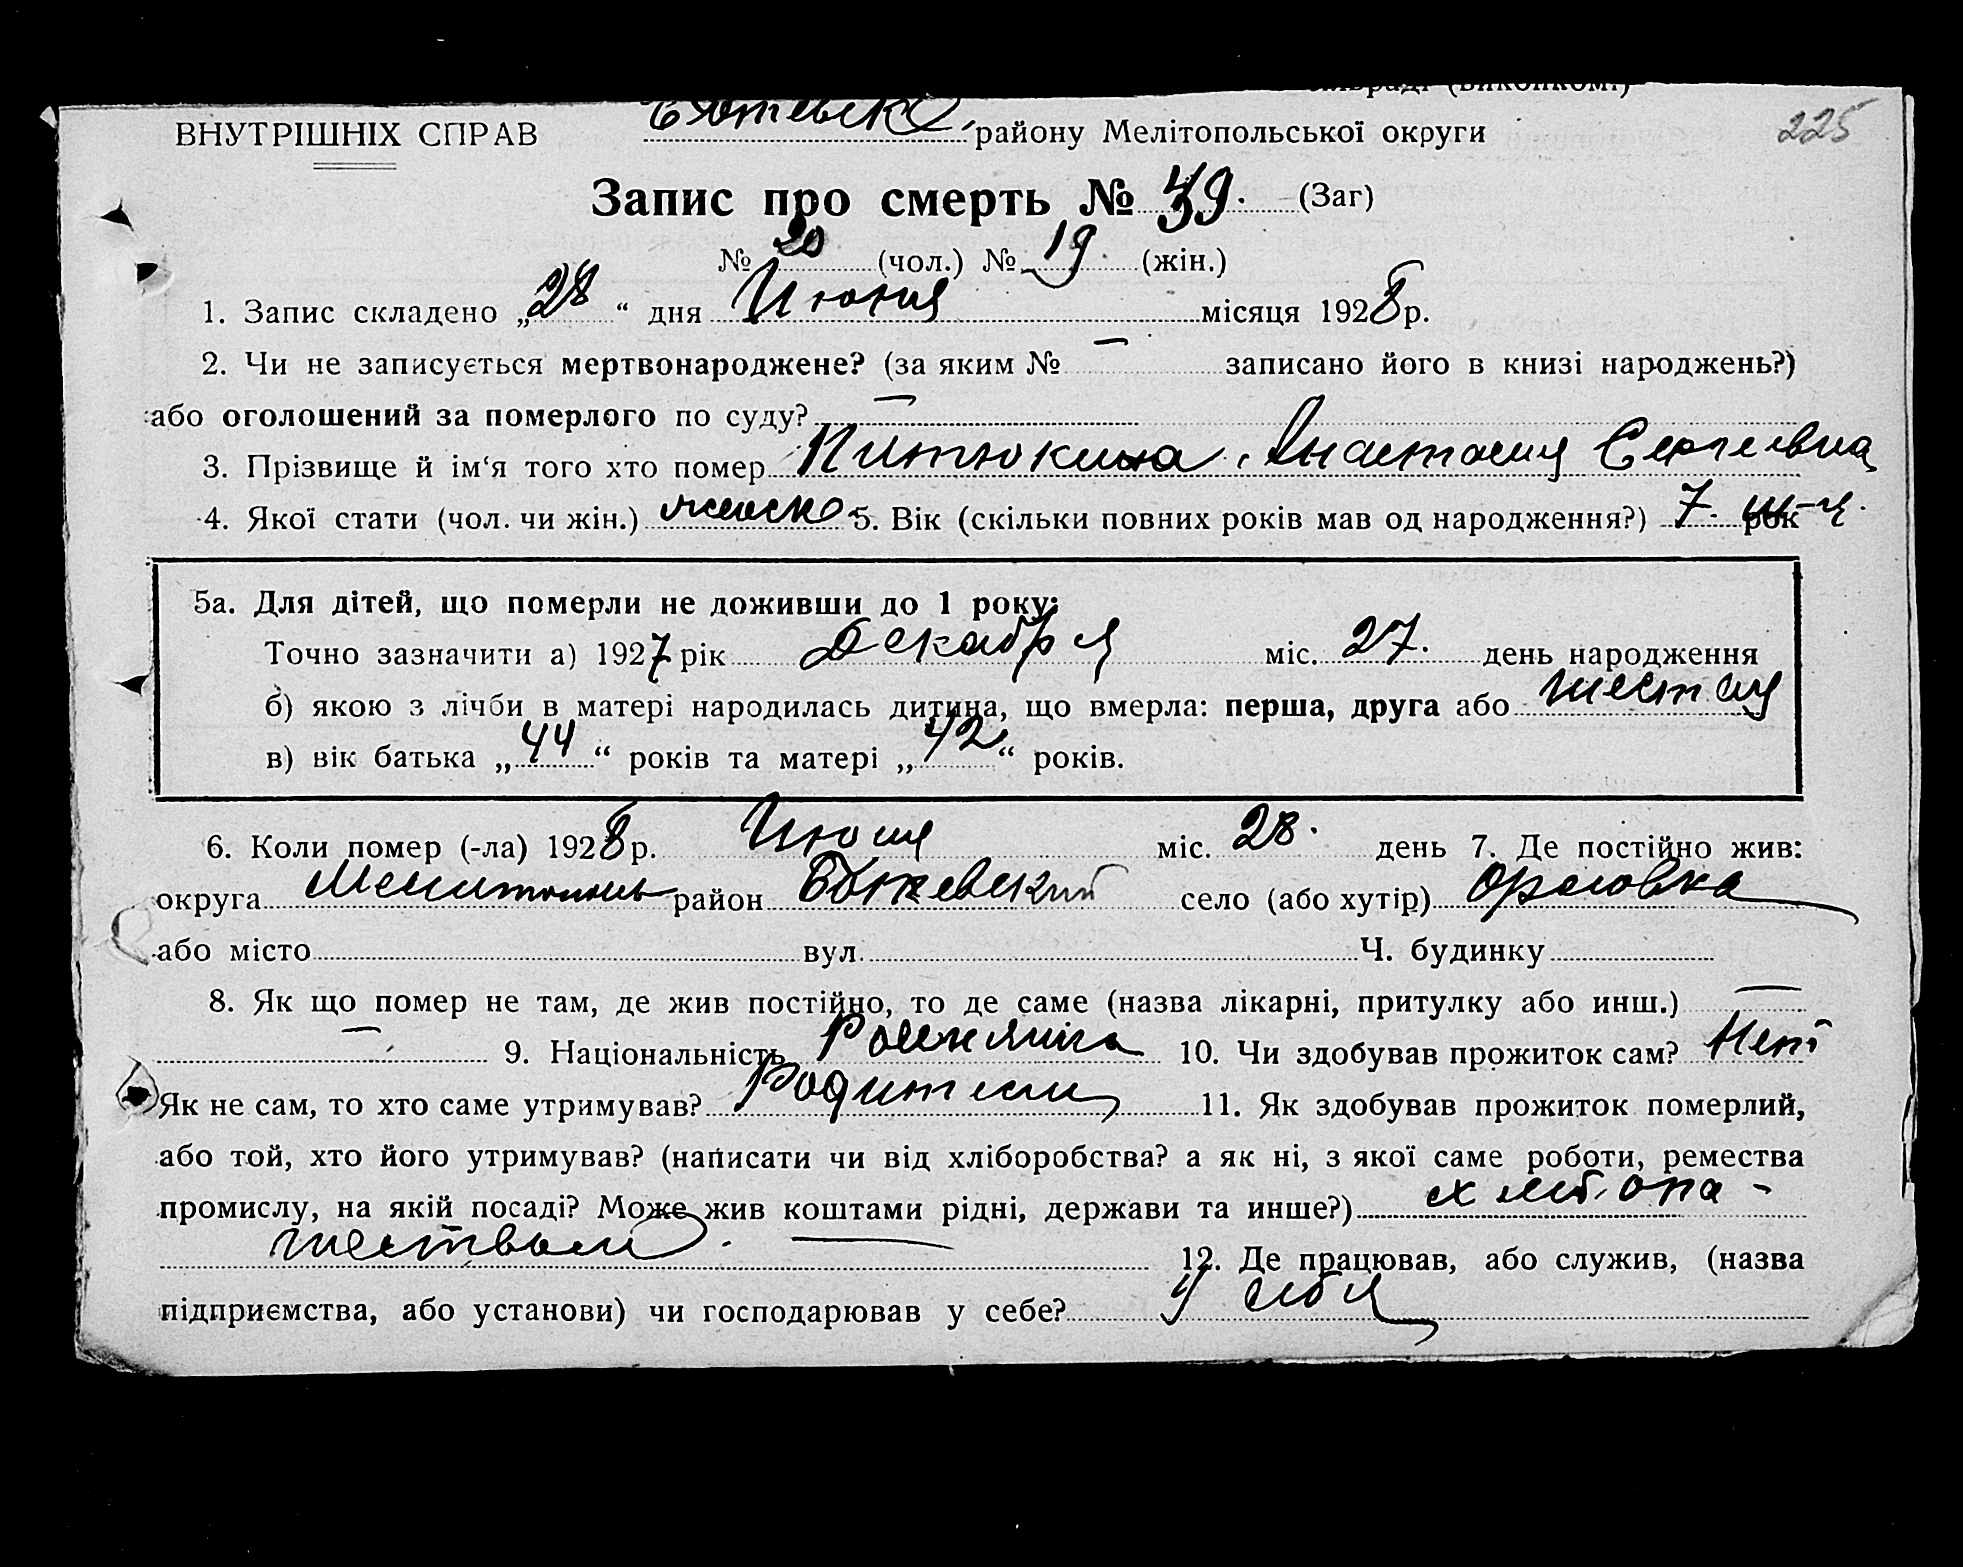 225
ВНУТРІШНІХ СПРАВ району Мелітопольської округи
Запис про смерть № 39. (Заг)
№ 20 (чол.) № 19 (жін.)
1. Запис складено „28“ дня Июня місяця 1928 р.
2. Чи не записується мертвонароджене? (за яким № — записано його в книзі народжень?)
або оголошений за померлого по суду? —
3. Прізвище й ім‘я того хто помер Питюкина Анастасия Сергеевна
4. Якої стати (чол. чи жін.) женск 5. Вік (скільки повних років мав од народження?) 7 рок
5а. Для дітей, що померли не доживши до 1 року:
Точно зазначити а) 1927 рік Декабря міс. 27. день народження
б) якою з лічби в матері народилась дитина, що вмерла: перша, друга або шестая
в) вік батька „44“ років та матері „42“ років.
6. Коли помер (-ла) 1928 р. Июня міс. 28. день 7. Де постійно жив:
округа Мелитополь район село (або хутір) Орловка
або місто вул. Ч. будинку
8. Як що помер не там, де жив постійно, то де саме (назва лікарні, притулку або инш.) —
— 9. Національність 10. Чи здобував прожиток сам? Нет
Як не сам, то хто саме утримував? Родители 11. Як здобував прожиток померлий,
або той, хто його утримував? (написати чи від хліборобства? а як ні, з якої саме роботи, ремества
промислу, на якій посаді? Може жив коштами рідні, держави та инше?) хлебопа-
шеством. — 12. Де працював, або служив, (назва
підприємства, або установи) чи господарював у себе? У себя